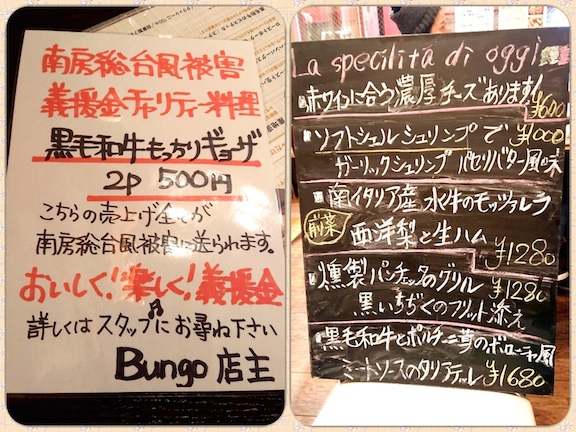 南房総台風被害
義援金チャリティー料理
黒毛和牛もっちりギョーザ
2P 500円
こちらの売上げ全てが
南房総台風被害に送られます。
おいしく！楽しく！義援金
詳しくはスタッフにお尋ね下さい
Bungo 店主
La specilità di oggi
赤ワインに合う濃厚チーズあります！
¥600
ソフトシェルシュリンプで ¥1000
ガーリックシュリンプ パセリバター風味
南イタリア産 水牛のモッツァレラ
前菜
西洋梨と生ハム ¥1280
燻製パンチェッタのグリル ¥1280
黒いちぢくのフリット添え
黒毛和牛とポルチーニ茸のボローニャ風
ミートソースのタリアテッレ ¥1680